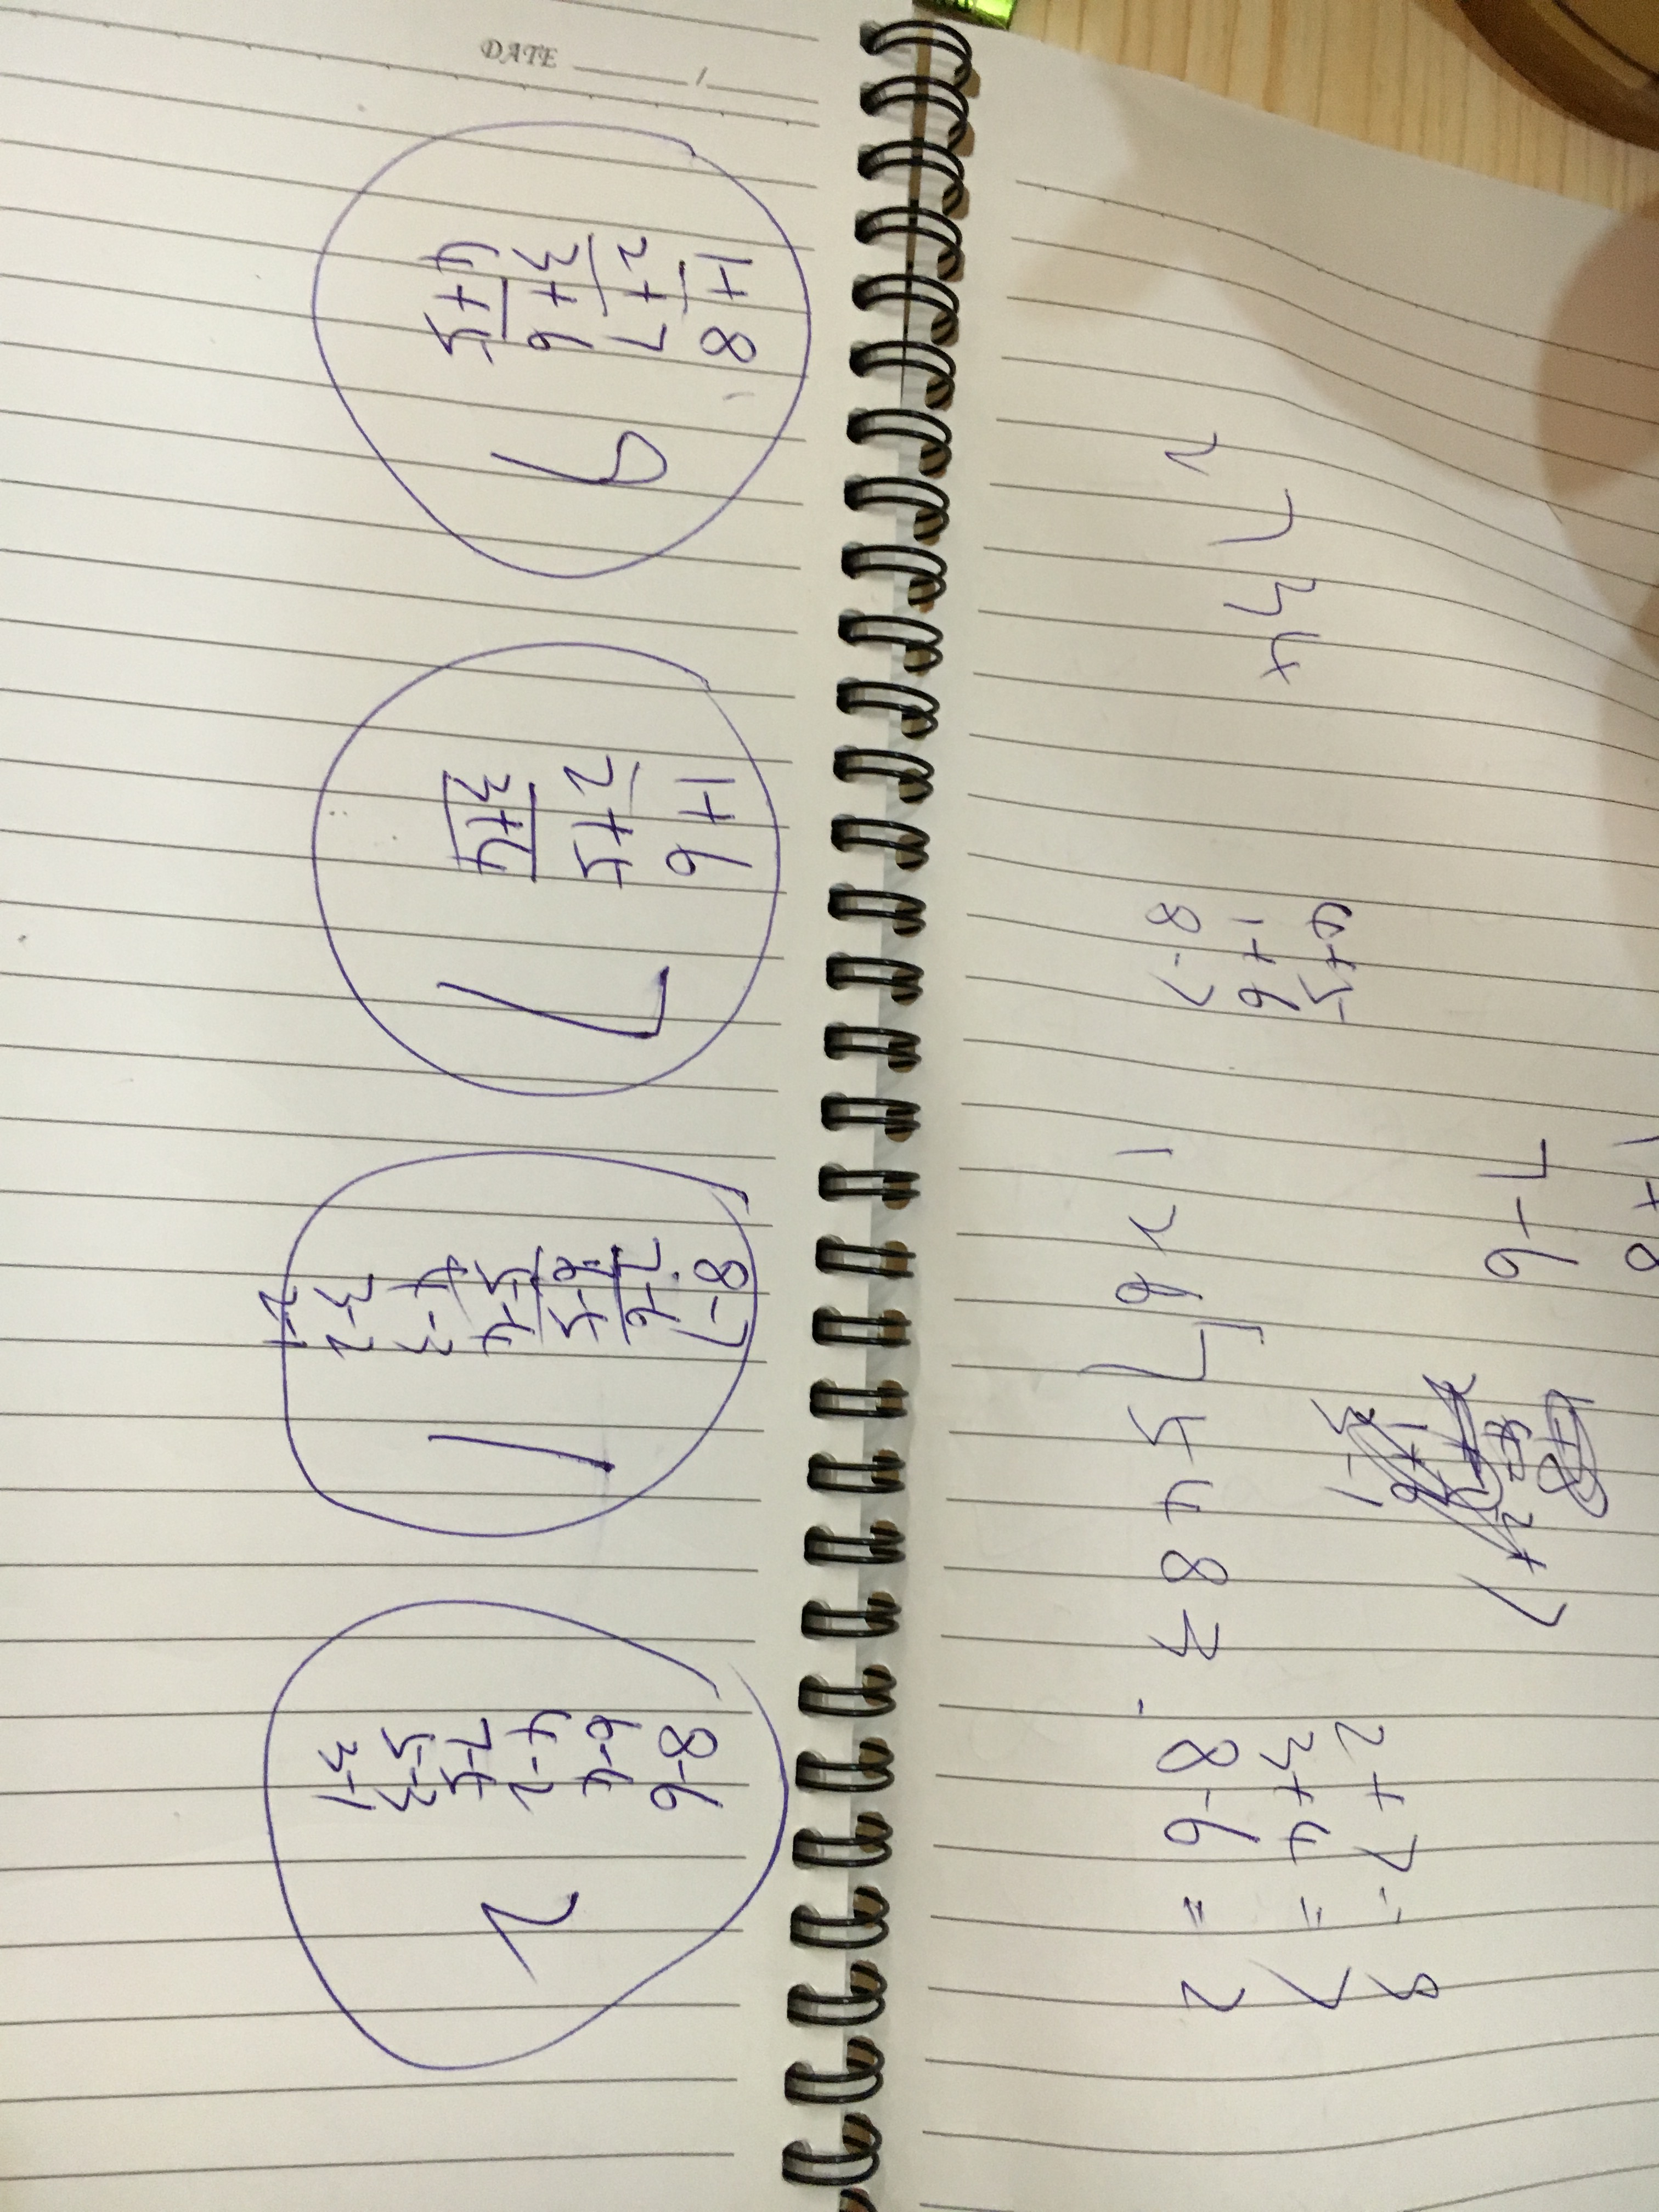 DATE / 
1+8
7-6
2+7
3-1
2 7 3 4
4+5
1+6
8-7
1 2 6 7 5 4 8 3
2+7=9
3+4=7
8-6=2
1+8
2+7
3+6
4+5
9
1+6
2+5
3+4
7
8-7
7-6
6-5
5-4
4-3
3-2
2-1
1
8-6
6-4
4-2
7-5
5-3
3-1
2